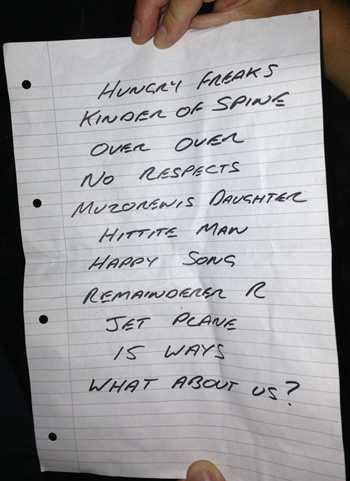 HUNGRY FREAKS
KINDER OF SPINE
OVER OVER
NO RESPECTS
MUZOREWIS DAUGHTER
HITTITE MAN
HAPPY SONG
REMAINDERER R
JET PLANE
15 WAYS
WHAT ABOUT US?